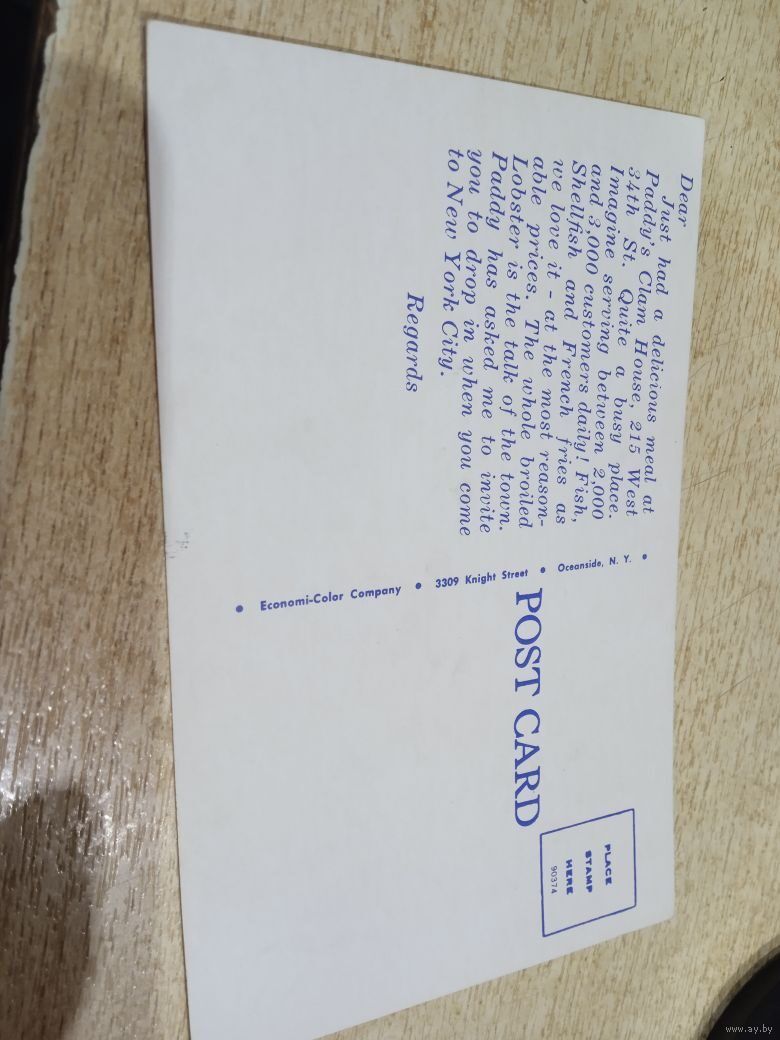 Dear
Just had a delicious meal at
Paddy's Clam House, 215 West
34th St. Quite a busy place.
Imagine serving between 2,000
and 3,000 customers daily! Fish,
Shellfish and French fries as
we love it - at the most reason-
able prices. The whole broiled
Lobster is the talk of the town.
Paddy has asked me to invite
you to drop in when you come
to New York City.
Regards
• Economi-Color Company • 3309 Knight Street • Oceanside, N. Y. •
POST CARD
PLACE
STAMP
HERE
90374
www.ay.by